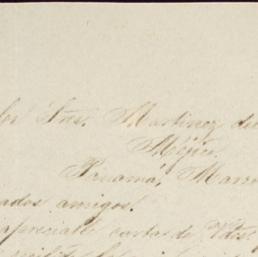 Sres. Martinez de
Méjico.
Panamá, Mar
ados amigos:
apreciable carta de Vdes